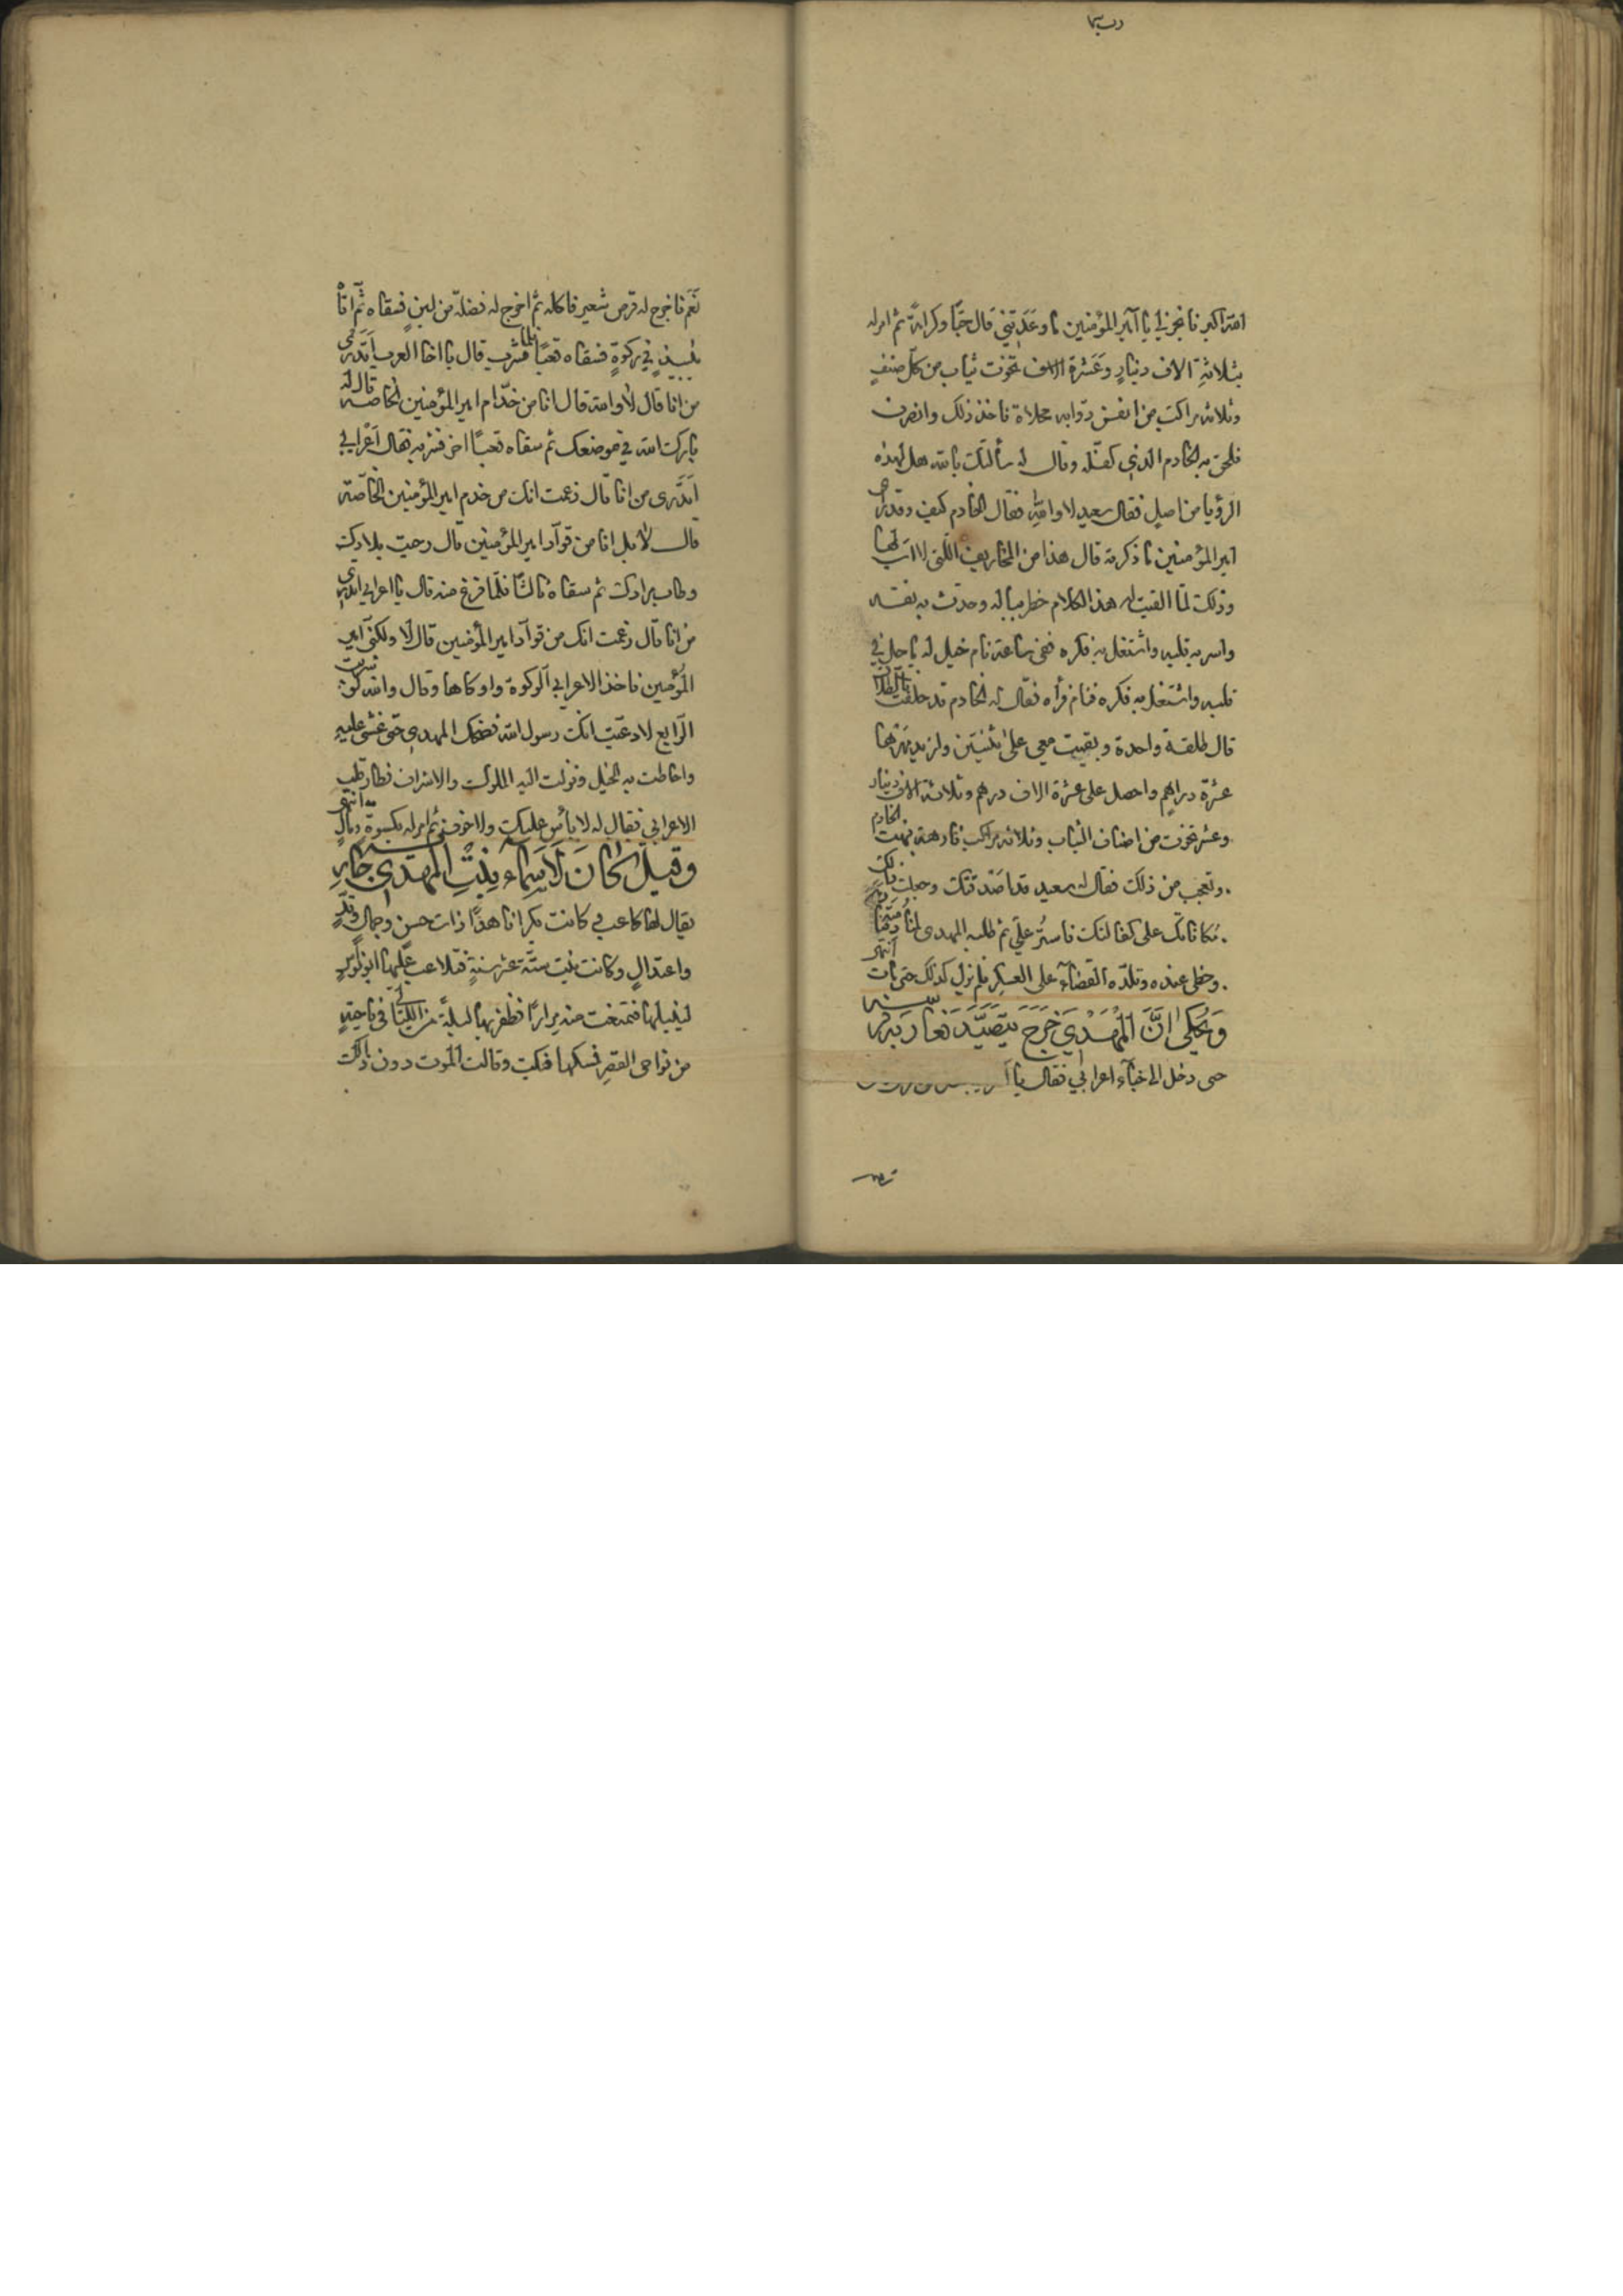 الله اكبر فانجز لي يا امير المؤمنين ما وعدتني قال حبّا وكرامة ثم امر له
بثلاثة الاف دينار وعشرة الاف تخوت ثياب من كلّ صنفٍ
وثلاثة مراكب من انفس دوابه محلاة فاخذ ذلك وانصرف
فلحق به الخادم الذي كفله وقال له سألتك بالله هل لهذه
الرؤيا من اصل فقال سعيد لا والله فقال الخادم كيف وقد راى
امير المؤمنين ما ذكرته قال هذا من المخاريق التي لا
وذلك لمّا القيت اليه هذا الكلام خطر بباله وحدث به نفسه
واسر به قلبه واشتغل به فكره ففي ساعة نام خيل له ما حل في
قلبه واشتغل به فكره فنام فرأه فقال له الخادم قد حلفت بالطلاق
قال طلقة واحدة وبقيت معي على ثنتين وازيد مهرها
عشرة دراهم واحصل على عشرة الاف درهم وثلاثة الاف دينار
وعشر تخوت من اصناف الثياب وثلاثة مراكب فارهة فبهت الخادم
وتعجب من ذلك فقال له سعيد قد صدقتك وجعلت ذلك
مكافاتك على كفالتك فاستر علي ثم طلبه المهدي
وحظي عنده وقلّده القضآء على العسكر فلم يزل كذلك حتى مات انتهى
وَيُحْكى انَّ المَهْدِيَ خَرَجَ يَتَصَيَّدَ فغار به فرسه
حتى دخل الى خبآء اعرابي فقال يا
نَعَم فاخرج له قرص شعير فاكله ثمّ اخرج له فضلة من لبنٍ فسقاه ثمّ اتاه
بنبيذٍ في ركوةٍ فسقاه قعبًا فلما شرب قال يا اخا العرب اتدرى
من انا قال لا والله قال انا من خدّام امير المؤمنين الخاصة قال له
بارك الله في موضعك ثم سقاه قعبًا اخر فشربه فقال اعرابي
اتدرى من انا قال زعمت انك من خدم امير المؤمنين الخاصّة
قال لا بل انا من قوآد امير المؤمنين قال رحبت بلادك
وطاب مرادك ثم سقاه ثالثًا فلمّا فرغ منه قال يا اعرابي اتدري
من انا قال زعمت انك من قوآد امير المؤمنين قال لا ولكني امير
المُؤمنين فاخذ الاعرابي الركوة واوكاها وقال والله لئن شربت
الرّابع لادعيت انك رسول الله فضحك المهدي حتى غشي عليه
واحاطت به الخيل ونزلت اليه الملوك والاشراف فطار قلب
الاعرابي فقال له لا باس عليك ولا خوف ثم امر له بكسوة ومال انتهى
وقيلَ كَانَ لَاسمآء بِنتِ المهدي جاريه
يقال لها كاعب كانت بكرا ناهدًا ذات حسن وجمال وقدٍّ
واعتدالٍ وكانت بنت ستّة عشر سنةٍ
فتمنعت منه مرارًا فظفر بها ليلةً من الليالي في ناحيةٍ
من نواحى القصر فمسكها فبكت وقالت الموت دون ذلك